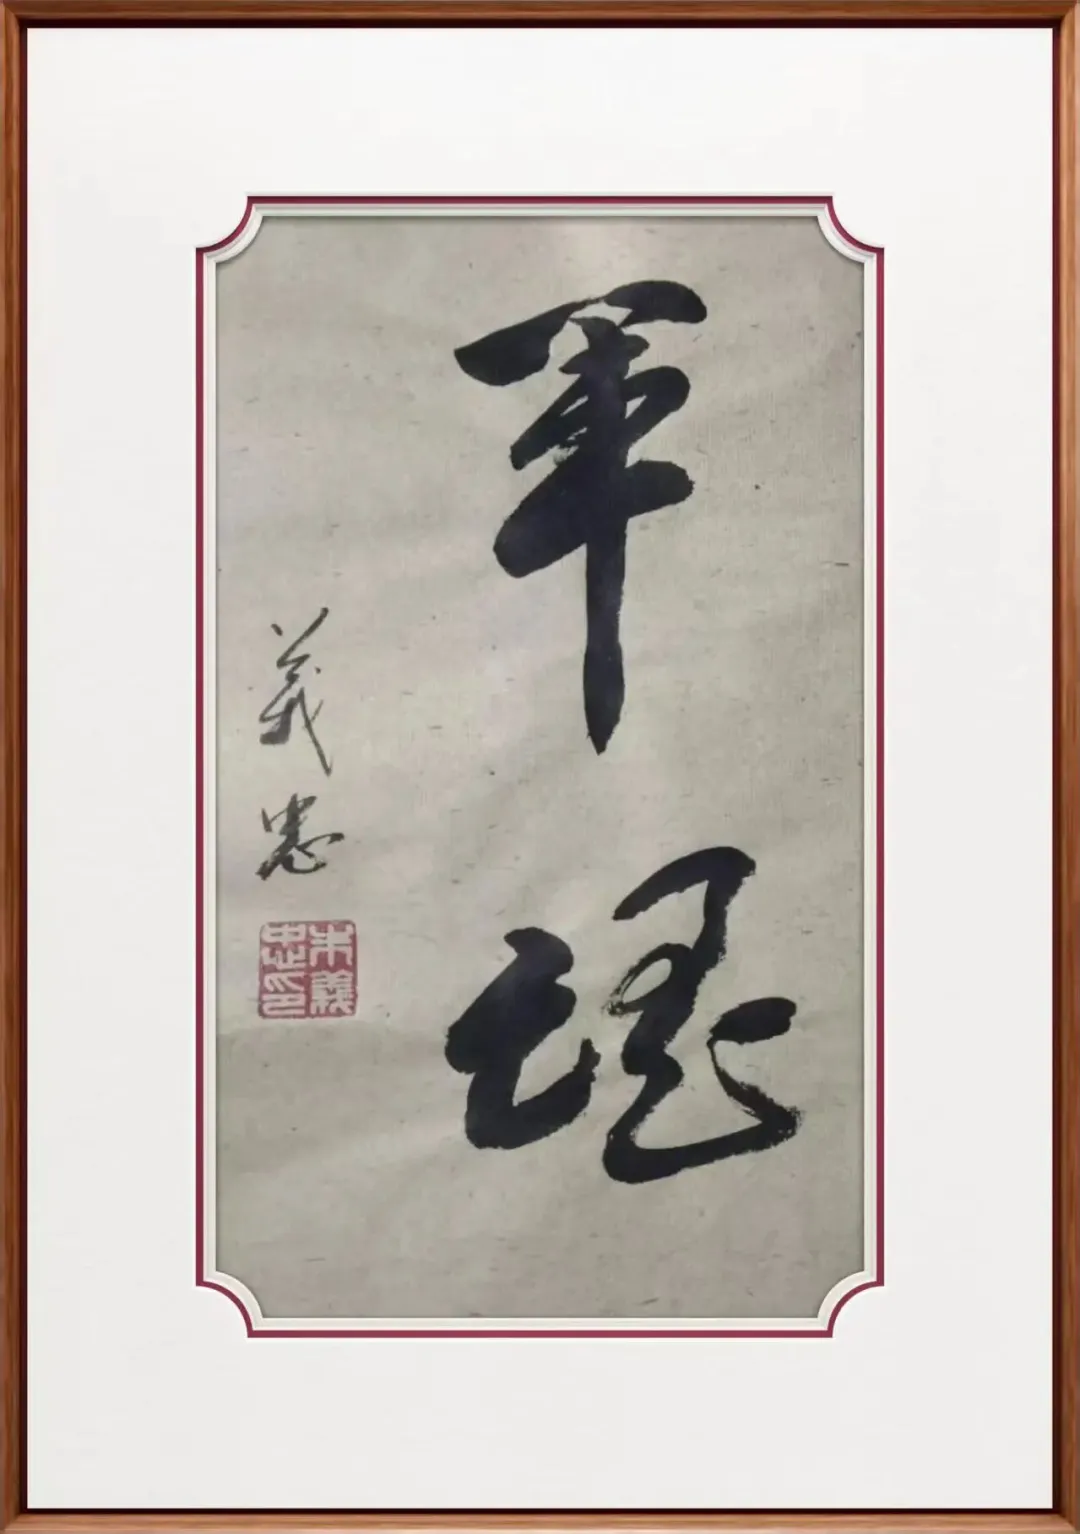 軍魂
義忠
朱義忠印